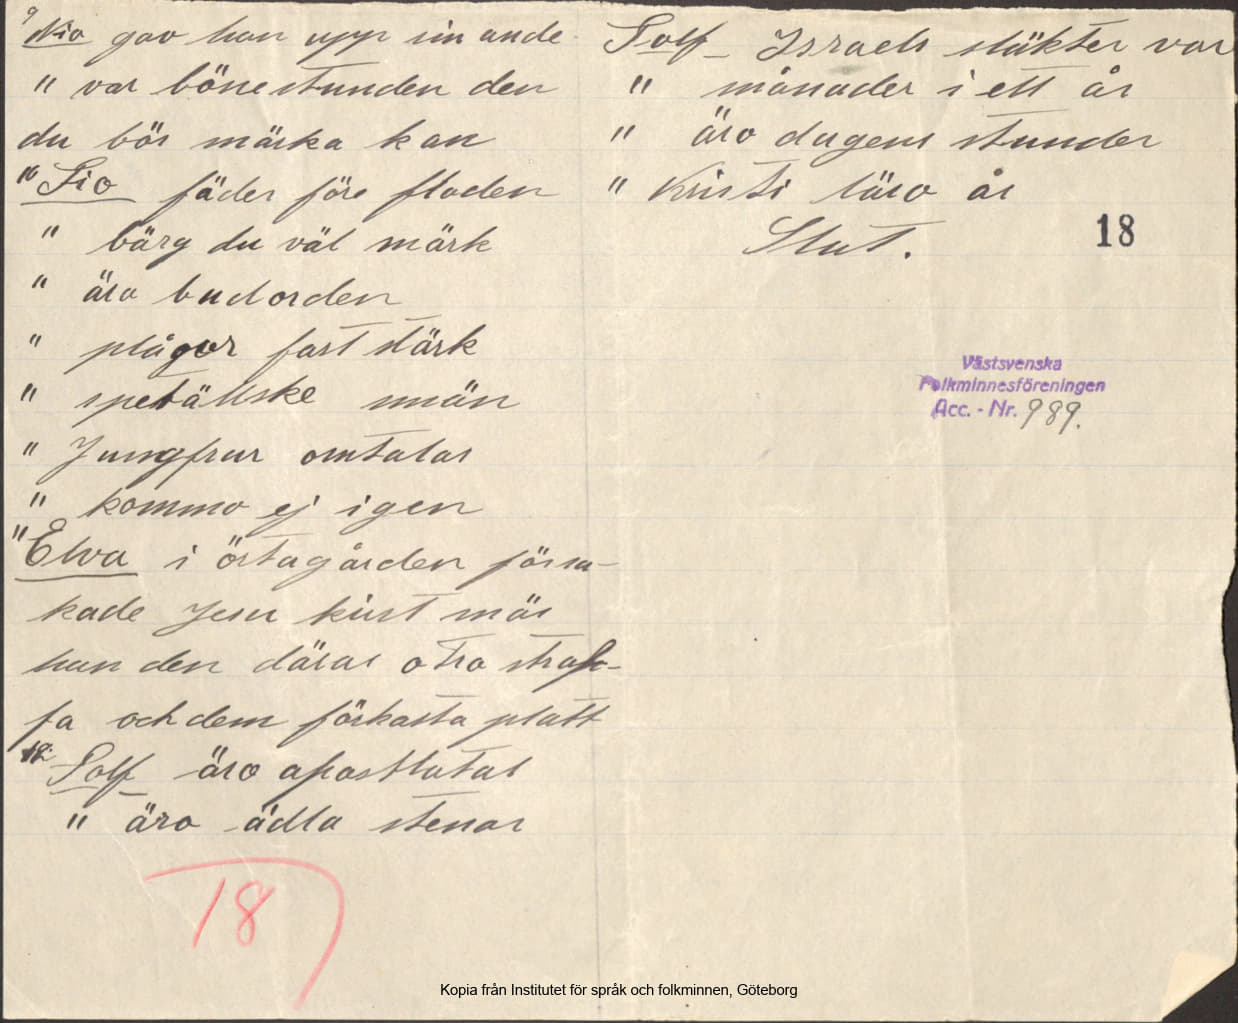 9 Nio gav han upp sin ande
" var bönestunden den
du bör märka kan
10 Tio fäder före floden
" bärg du väl märk
" äro budorden
" plågor fast stärk
" spetällske män
" Jungfrur omtalas
" kommo ej igen
11 Elva i örtagården försa-
kade Jesu kirst mäs
han den däras otro straf-
fa och dem förkasta platt
12 Tolf äro apostlatal
" äro ädla stenar
18
Tolf Israels släkter var
" månader i ett år
" äro dagens stunder
" Kristi läro år
Slut.
18
Västsvenska
Folkminnesföreningen
Acc. - Nr. 989.
Kopia från Institutet för språk och folkminnen, Göteborg